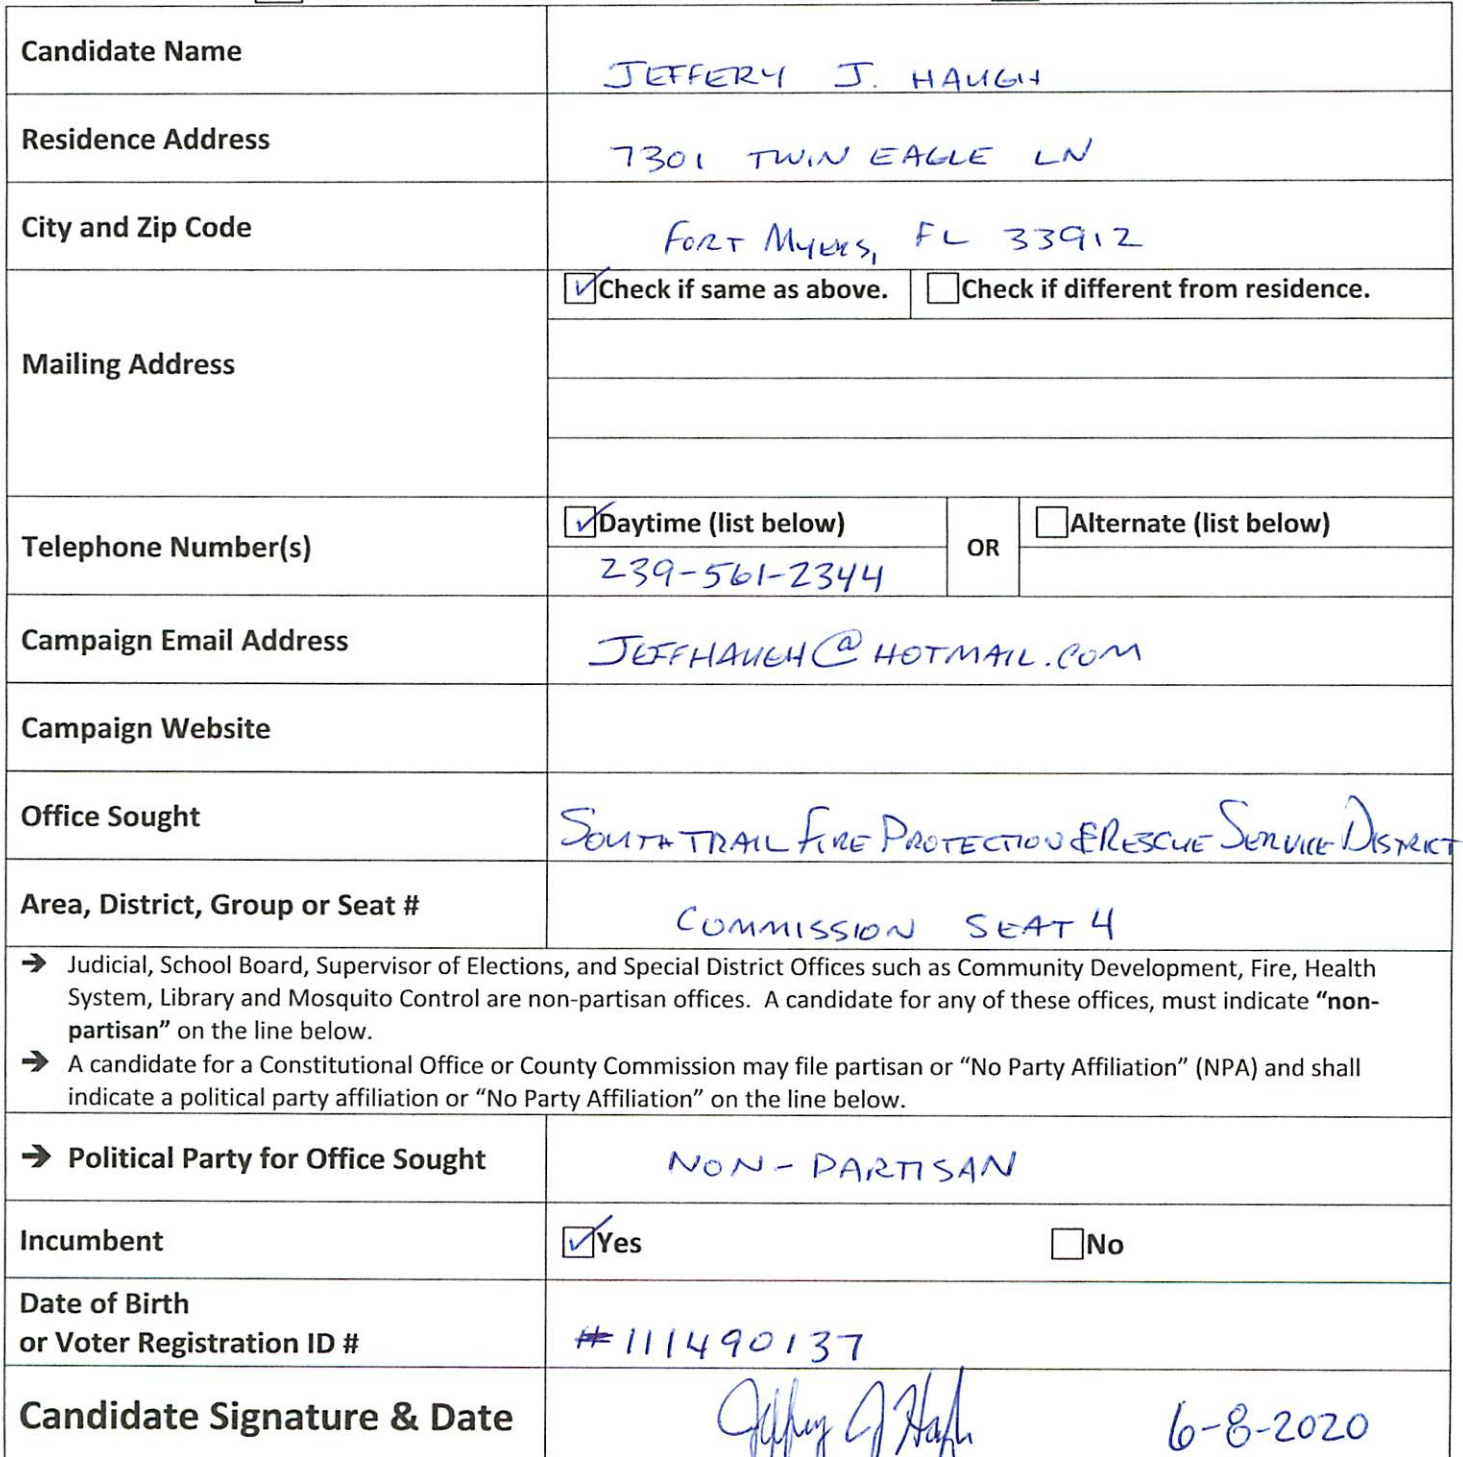 Candidate Name
JEFFERY J. HAUGH
Residence Address
7301 TWIN EAGLE LN
City and Zip Code
FORT MYERS, FL 33912
Mailing Address
Check if same as above. Check if different from residence.
Telephone Number(s)
Daytime (list below) OR Alternate (list below)
239-561-2344
Campaign Email Address
JEFFHAUGH@HOTMAIL.COM
Campaign Website
Office Sought
SOUTH TRAIL FIRE PROTECTION & RESCUE SERVICE DISTRICT
Area, District, Group or Seat #
COMMISSION SEAT 4
→ Judicial, School Board, Supervisor of Elections, and Special District Offices such as Community Development, Fire, Health
System, Library and Mosquito Control are non-partisan offices. A candidate for any of these offices, must indicate “non-
partisan” on the line below.
→ A candidate for a Constitutional Office or County Commission may file partisan or “No Party Affiliation” (NPA) and shall
indicate a political party affiliation or “No Party Affiliation” on the line below.
→ Political Party for Office Sought
NON-PARTISAN
Incumbent
Yes No
Date of Birth
or Voter Registration ID #
#111490137
Candidate Signature & Date
Jeffery J Haugh 6-8-2020